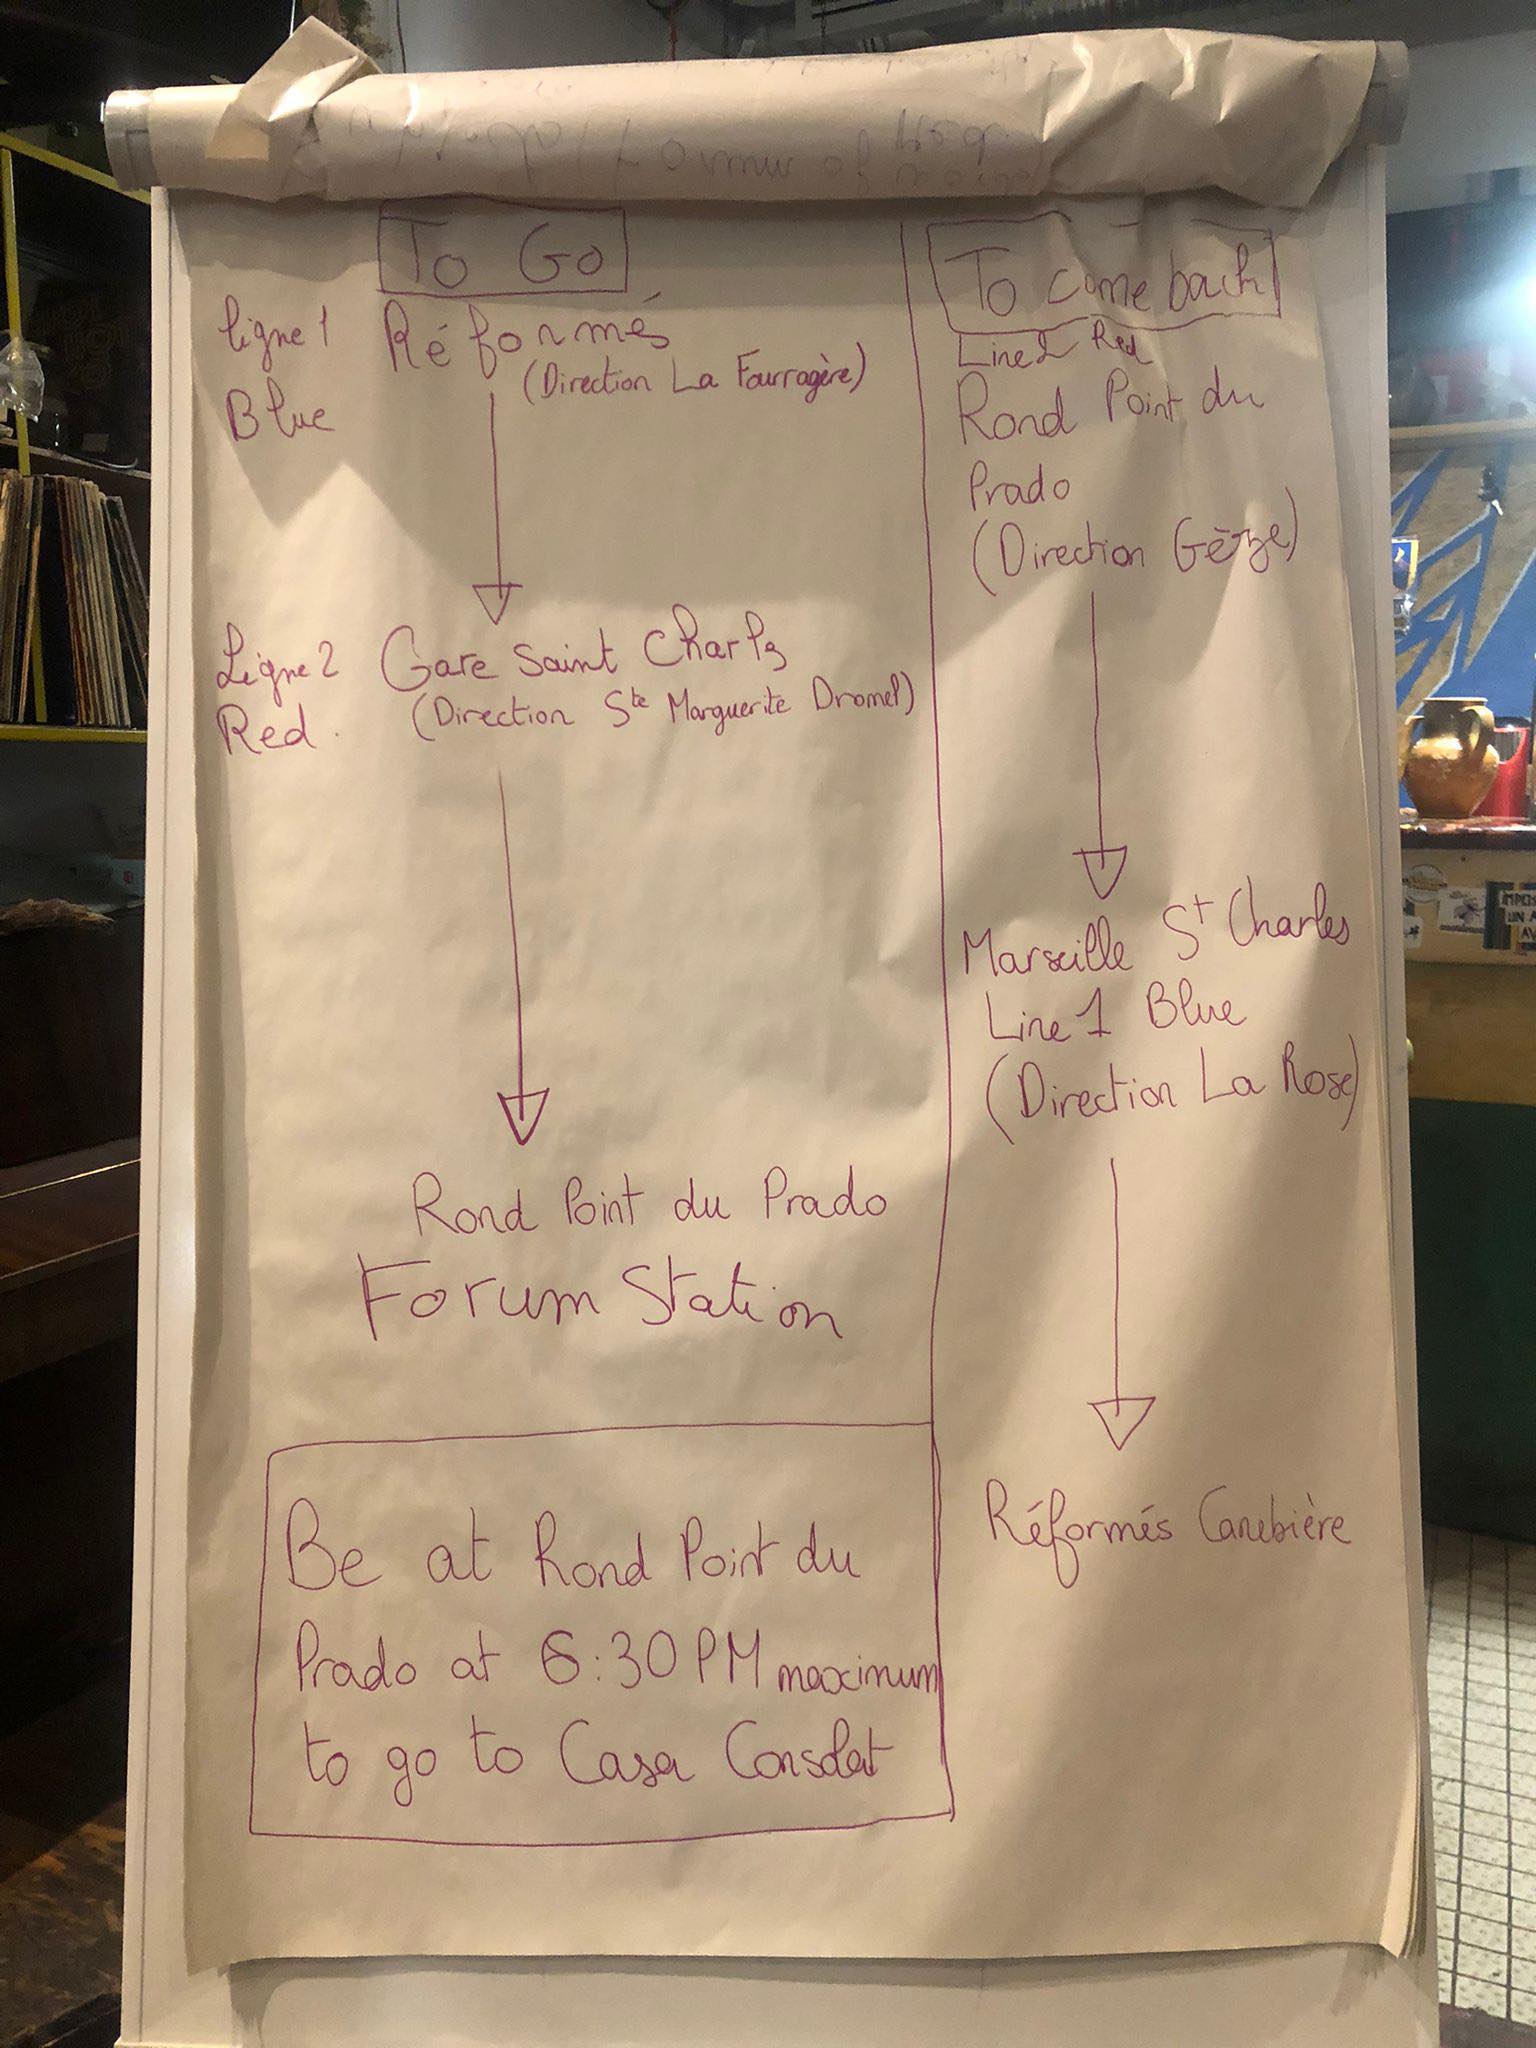 To Go
ligne 1 Réformés
(Direction La Fourragère)
Blue
Ligne 2 Gare Saint Charles
Red. (Direction Ste Marguerite Dromel)
Rond Point du Prado
Forum Station
Be at Rond Point du
Prado at 6:30 PM maximum
to go to Casa Consolat
To come back
Line 2 Red
Rond Point du
Prado
(Direction Gèze)
Marseille St Charles
Line 1 Blue
(Direction La Rose)
Réformés Canebière